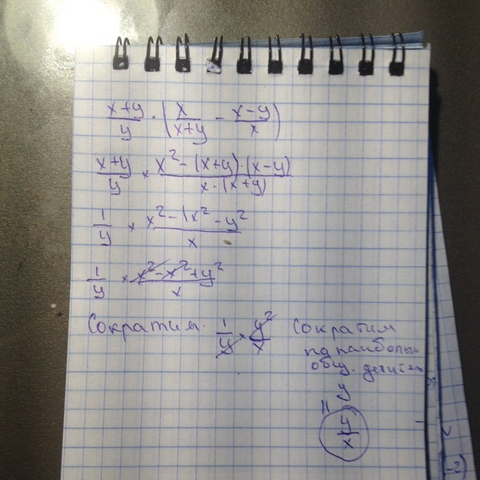 (x+y)/y · (x/(x+y) - (x-y)/x)
(x+y)/y × (x² - (x+y)·(x-y))/(x·(x+y))
1/y × (x² - (x² - y²)/x
1/y × (x² - x² + y²)/x
Сократим 1/y × y²/x
Сократим
на наиболь
общ. делител
y
=
y/x
-2)